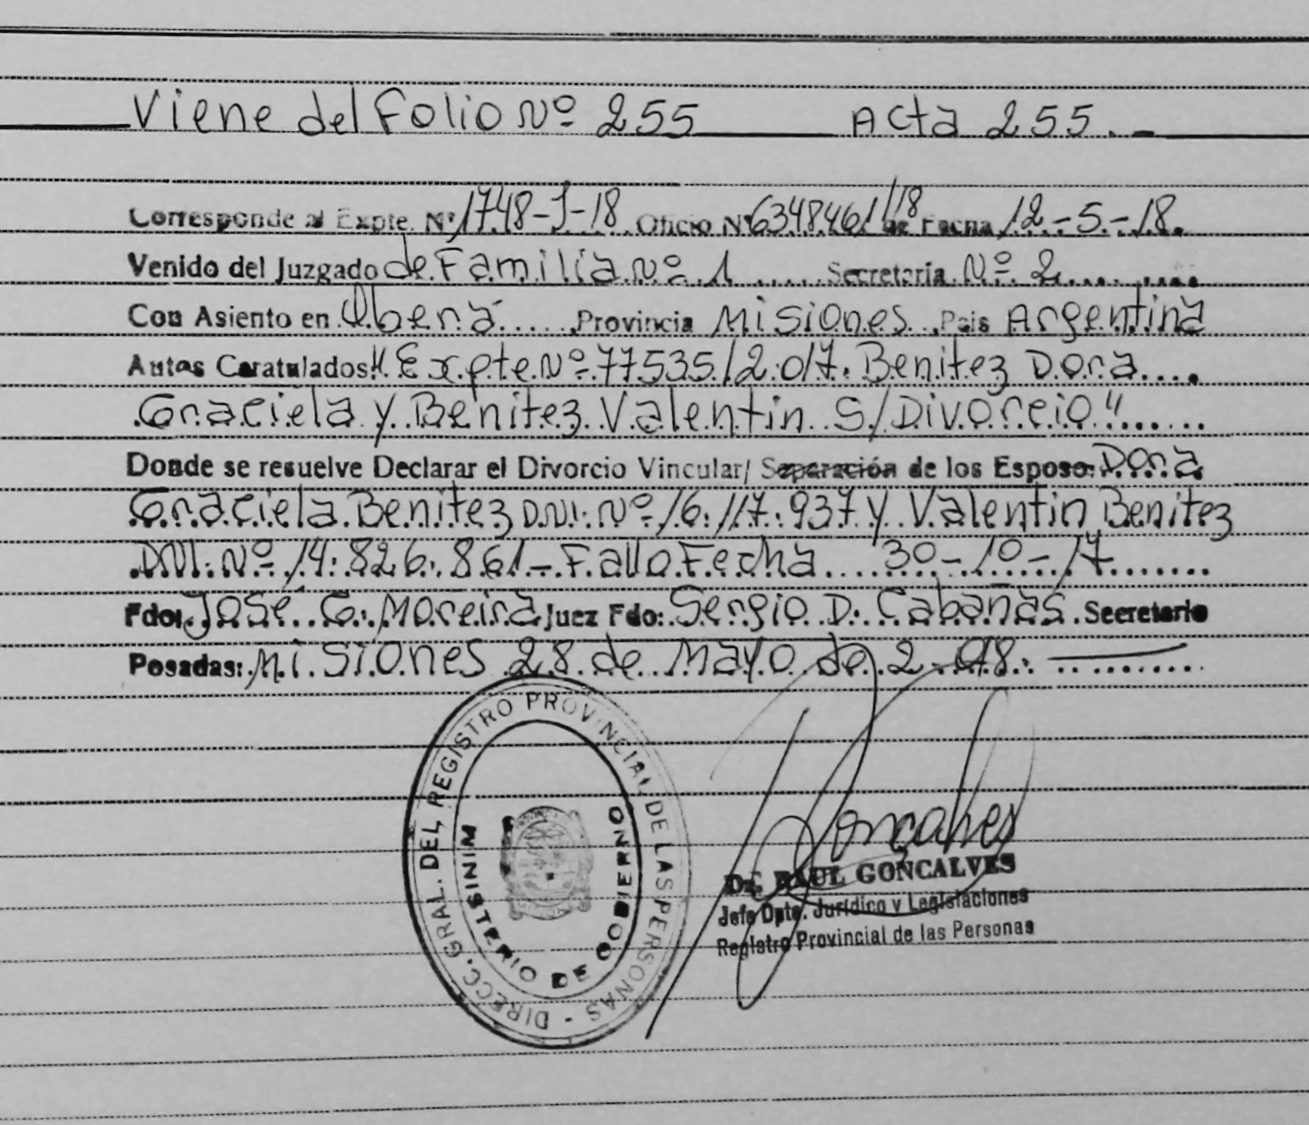 Viene del Folio Nº 255 Acta 255.-
Corresponde al Expte. Nº 1748-J-18 Oficio Nº 6348461/18 de Fecha 12-5-18.
Venido del Juzgado de Familia Nº 1 Secretaria Nº 2
Con Asiento en Oberá Provincia Misiones Pais Argentina
Autos Caratulados "Expte Nº 77535/2017. Benitez Dora
Graciela y Benitez Valentin S/Divorcio"
Donde se resuelve Declarar el Divorcio Vincular/ Separación de los Esposo: Dora
Graciela Benitez D.N.I. Nº 16.117.937 y Valentin Benitez
D.N.I. Nº 14.826.861 - Fallo Fecha 30-10-17
Fdo: José G. Moreira Juez Fdo: Sergio D. Cabañas Secretario
Posadas: Misiones 28 de Mayo de 2.018.
DIRECC. GRAL. DEL REGISTRO PROVINCIAL DE LAS PERSONAS -
MINISTERIO DE GOBIERNO
Gonçalves
Dr. RAUL GONÇALVES
Jefe Dpto. Jurídico y Legislaciones
Registro Provincial de las Personas